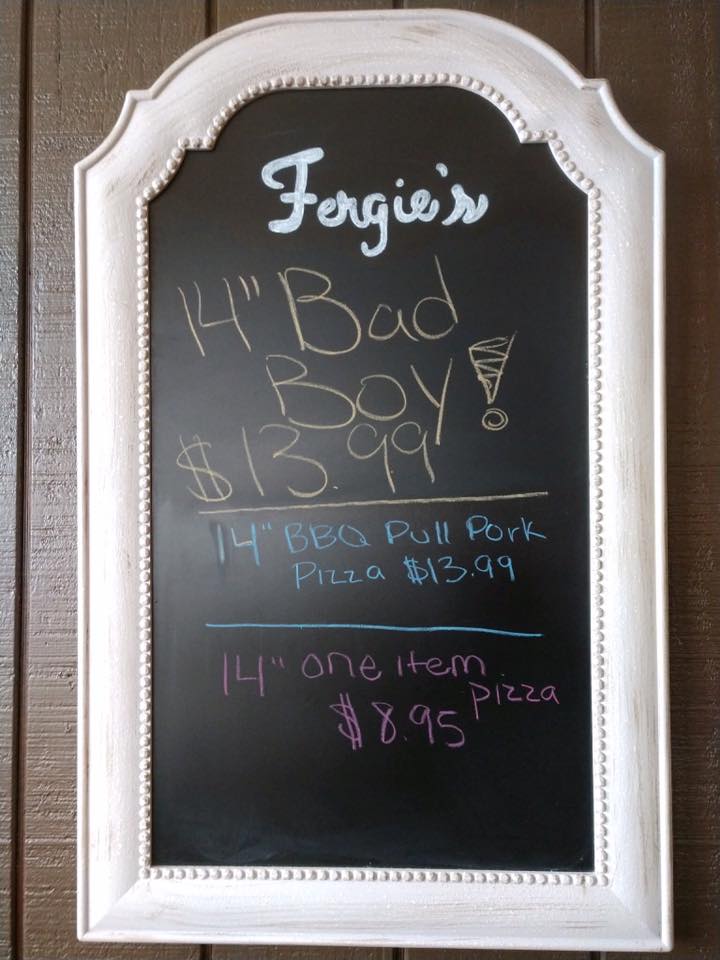 Fergie's
14" Bad
Boy!
$13.99
14" BBQ Pull Pork
Pizza $13.99
14" one item
pizza
$8.95